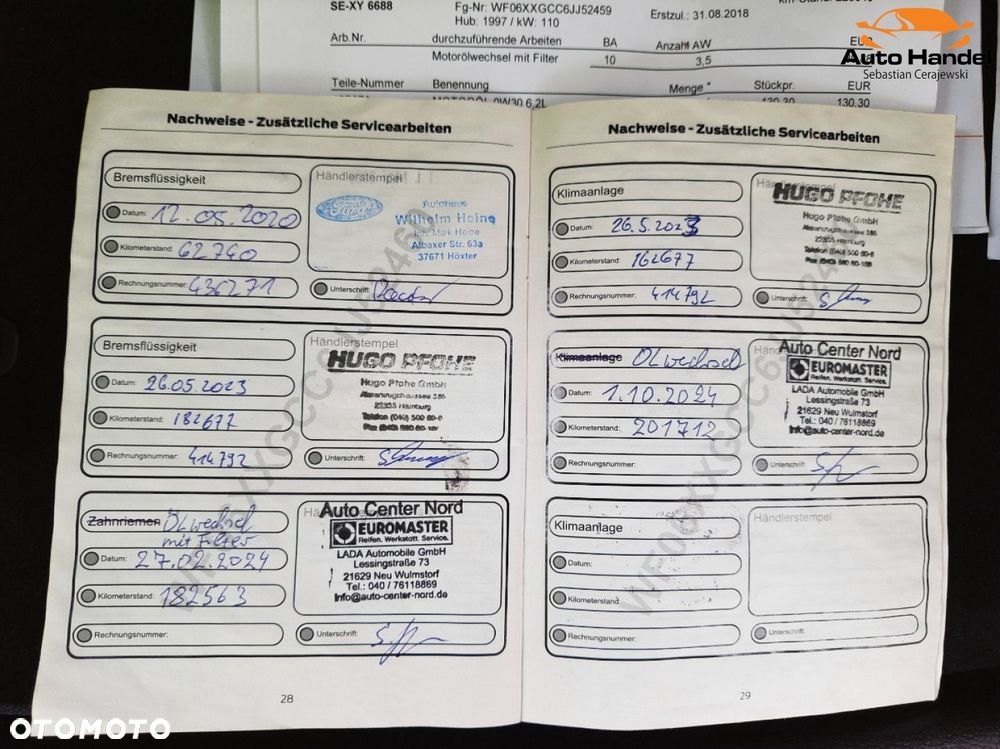 SE-XY 6688
Fg-Nr: WF06XXGCC6JJ52459
Hub: 1997 / kW: 110
Erstzul.: 31.08.2018
Arb.Nr.
durchzuführende Arbeiten
BA
Anzahl AW
EUR
Motorölwechsel mit Filter
10
3,5
Teile-Nummer
Benennung
Menge *
Stückpr.
EUR
MOTORÖL 0W30 6,2L
130.30
130.30
Auto Handel
Sebastian Cerajewski
Nachweise - Zusätzliche Servicearbeiten
Bremsflüssigkeit
Datum: 12.05.2020
Kilometerstand: 62740
Rechnungsnummer: 436271
Händlerstempel
Ford
Autohaus
Wilhelm Heine
Inh. Maik Heine
Albaxer Str. 63a
37671 Höxter
Unterschrift:
Bremsflüssigkeit
Datum: 26.05.2023
Kilometerstand: 162677
Rechnungsnummer: 414792
Händlerstempel
HUGO PFOHE
Hugo Pfohe GmbH
Alsterkrugchaussee 355
22335 Hamburg
Telefon (040) 500 60-0
Unterschrift:
Zahnriemen Ölwechsel
mit Filter
Datum: 27.02.2024
Kilometerstand: 182563
Rechnungsnummer:
Auto Center Nord
EUROMASTER
Reifen. Werkstatt. Service.
LADA Automobile GmbH
Lessingstraße 73
21629 Neu Wulmstorf
Tel.: 040 / 76118869
Info@auto-center-nord.de
Unterschrift:
28
Nachweise - Zusätzliche Servicearbeiten
Klimaanlage
Datum: 26.5.2023
Kilometerstand: 162677
Rechnungsnummer: 414792
HUGO PFOHE
Hugo Pfohe GmbH
Alsterkrugchaussee 355
22335 Hamburg
Telefon (040) 500 60-0
Unterschrift:
Klimaanlage Ölwechsel
Datum: 1.10.2024
Kilometerstand: 201712
Rechnungsnummer:
Auto Center Nord
EUROMASTER
Reifen. Werkstatt. Service.
LADA Automobile GmbH
Lessingstraße 73
21629 Neu Wulmstorf
Tel.: 040 / 76118869
Info@auto-center-nord.de
Unterschrift:
Klimaanlage
Datum:
Kilometerstand:
Rechnungsnummer:
Händlerstempel
Unterschrift:
29
OTOMOTO